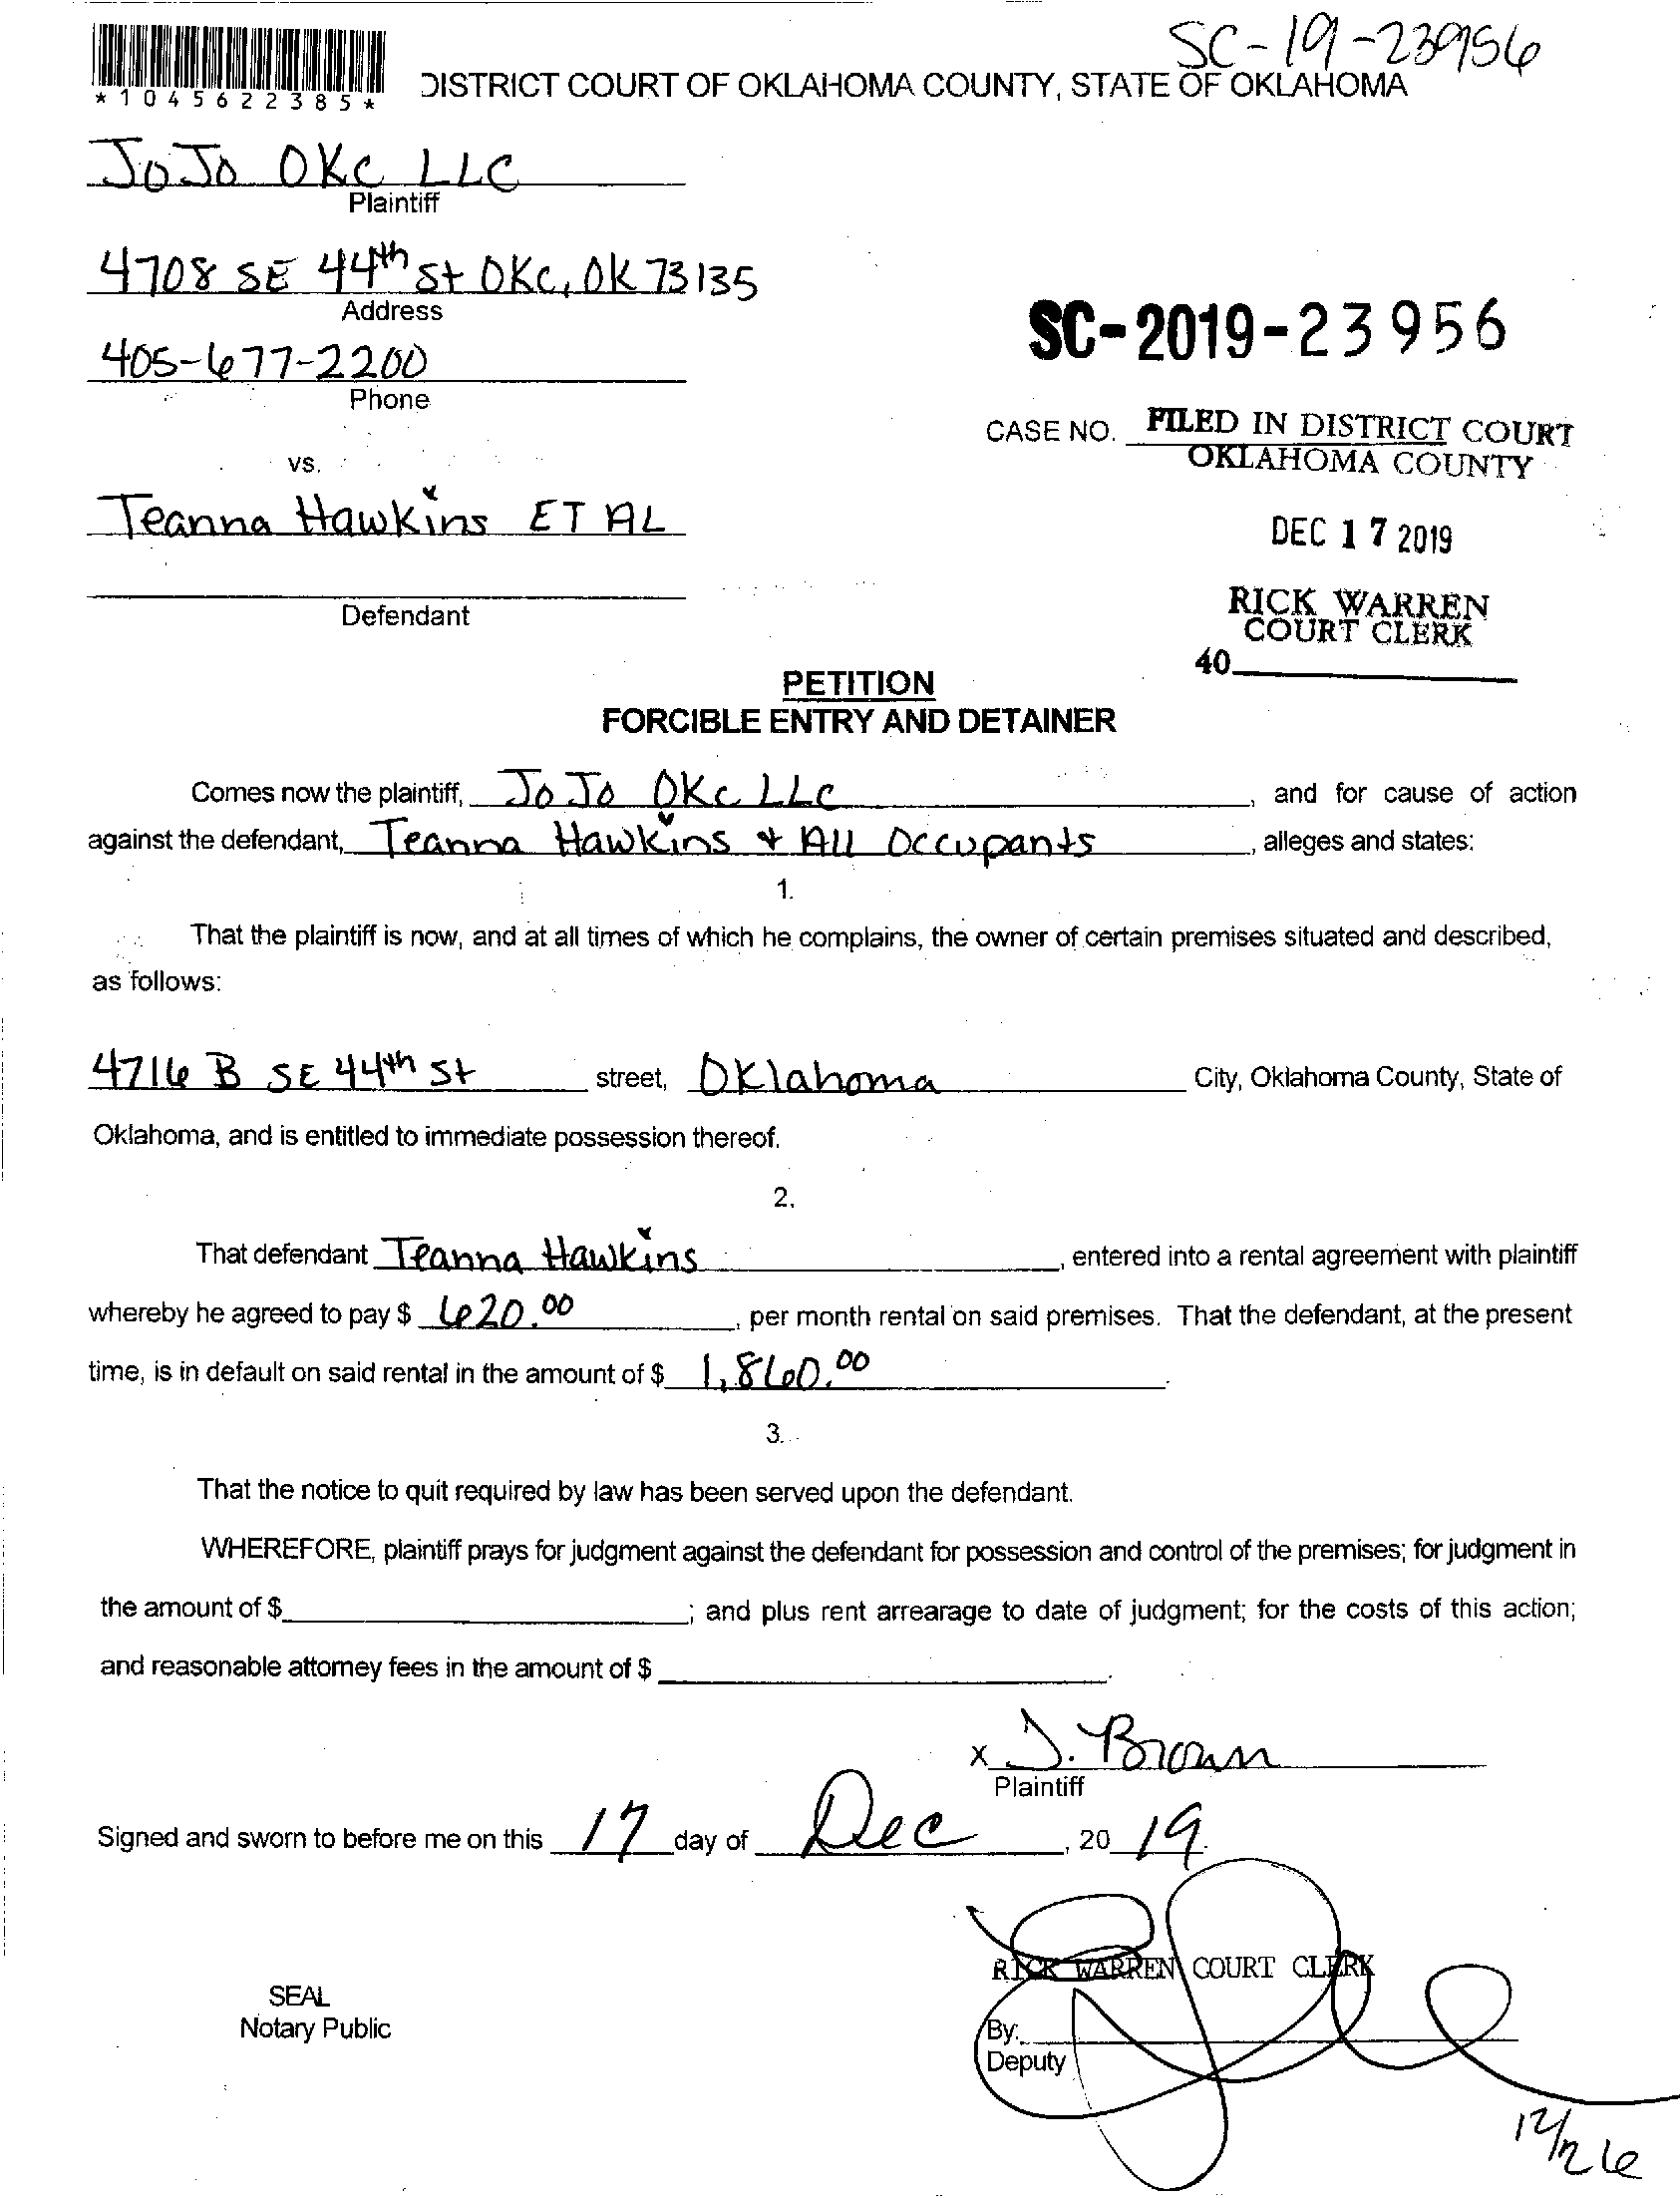 SC-19-23956
*1045622385*
DISTRICT COURT OF OKLAHOMA COUNTY, STATE OF OKLAHOMA
JoJo OKC LLC
Plaintiff
4708 SE 44th St OKC, OK 73135
Address
405-677-2200
Phone
SC-2019-23956
CASE NO. FILED IN DISTRICT COURT
OKLAHOMA COUNTY
vs.
Teanna Hawkins ET AL
DEC 17 2019
Defendant
RICK WARREN
COURT CLERK
40
PETITION
FORCIBLE ENTRY AND DETAINER
Comes now the plaintiff, JoJo OKC LLC, and for cause of action
against the defendant, Teanna Hawkins + All Occupants, alleges and states:
1.
That the plaintiff is now, and at all times of which he complains, the owner of certain premises situated and described,
as follows:
4716 B SE 44th St street, Oklahoma City, Oklahoma County, State of
Oklahoma, and is entitled to immediate possession thereof.
2.
That defendant Teanna Hawkins, entered into a rental agreement with plaintiff
whereby he agreed to pay $ 620.00, per month rental on said premises. That the defendant, at the present
time, is in default on said rental in the amount of $ 1,860.00.
3.
That the notice to quit required by law has been served upon the defendant.
WHEREFORE, plaintiff prays for judgment against the defendant for possession and control of the premises; for judgment in
the amount of $ ; and plus rent arrearage to date of judgment; for the costs of this action;
and reasonable attorney fees in the amount of $ .
x J. Brown
Plaintiff
Signed and sworn to before me on this 17 day of Dec, 20 19.
RICK WARREN COURT CLERK
SEAL
Notary Public
By:
Deputy
12/26